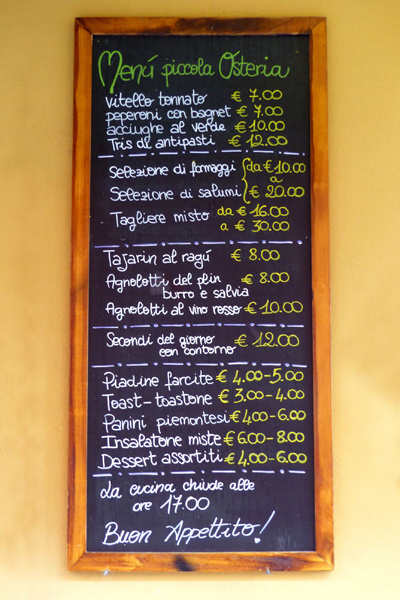 Menú piccola Osteria
vitello tonnato € 7.00
peperoni con bagnet € 7.00
acciughe al verde € 10.00
Tris di antipasti € 12.00
Selezione di formaggi da € 10.00
a
Selezione di salumi € 20.00
Tagliere misto da € 16.00
a € 30.00
Tajarin al ragú € 8.00
Agnolotti del plin € 8.00
burro e salvia
Agnolotti al vino rosso € 10.00
Secondi del giorno € 12.00
con contorno
Piadine farcite € 4.00-5.00
Toast-toastone € 3.00-4.00
Panini piemontesi € 4.00-6.00
Insalatone miste € 6.00-8.00
Dessert assortiti € 4.00-6.00
La cucina chiude alle
ore 17.00
Buon Appettito!